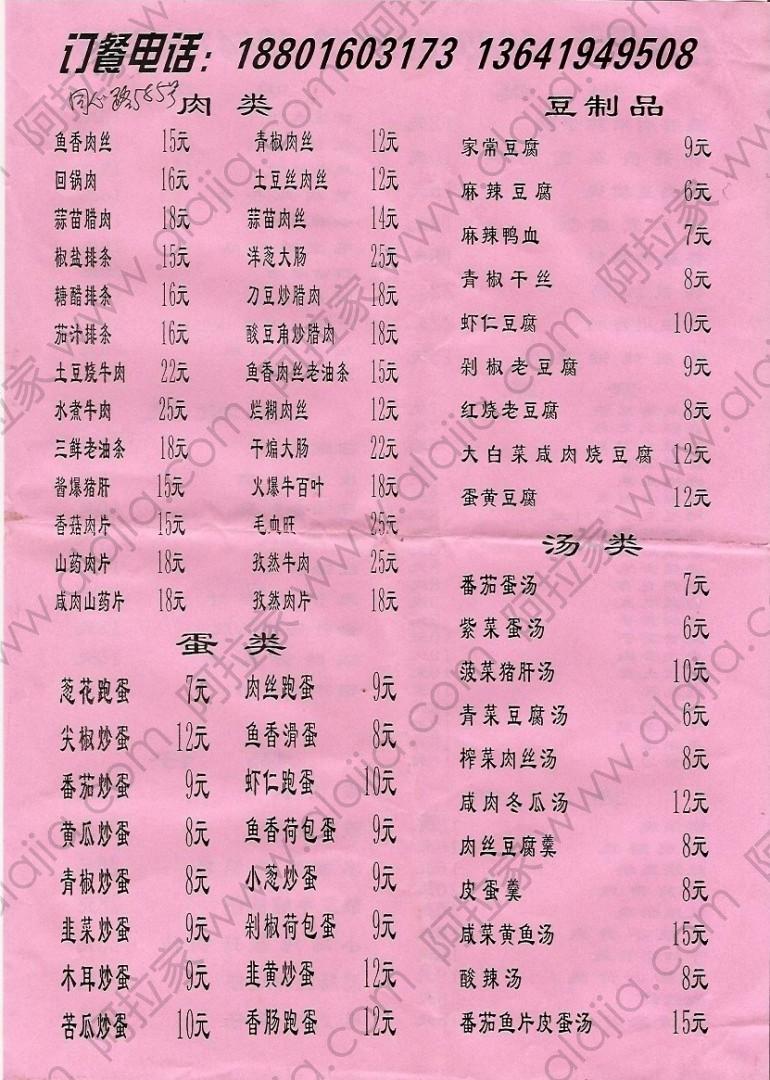 订餐电话: 18801603173 13641949508
同心路585号
肉类
鱼香肉丝 15元 青椒肉丝 12元
回锅肉 16元 土豆丝肉丝 12元
蒜苗腊肉 18元 蒜苗肉丝 14元
椒盐排条 15元 洋葱大肠 25元
糖醋排条 16元 刀豆炒腊肉 18元
茄汁排条 16元 酸豆角炒腊肉 18元
土豆烧牛肉 22元 鱼香肉丝老油条 15元
水煮牛肉 25元 烂糊肉丝 12元
三鲜老油条 18元 干煸大肠 22元
酱爆猪肝 15元 火爆牛百叶 18元
香菇肉片 15元 毛血旺 25元
山药肉片 18元 孜然牛肉 25元
咸肉山药片 18元 孜然肉片 18元
蛋类
葱花跑蛋 7元 肉丝跑蛋 9元
尖椒炒蛋 12元 鱼香滑蛋 8元
番茄炒蛋 9元 虾仁跑蛋 10元
黄瓜炒蛋 8元 鱼香荷包蛋 9元
青椒炒蛋 8元 小葱炒蛋 9元
韭菜炒蛋 9元 剁椒荷包蛋 9元
木耳炒蛋 9元 韭黄炒蛋 12元
苦瓜炒蛋 10元 香肠跑蛋 12元
豆制品
家常豆腐 9元
麻辣豆腐 6元
麻辣鸭血 7元
青椒干丝 8元
虾仁豆腐 10元
剁椒老豆腐 9元
红烧老豆腐 8元
大白菜咸肉烧豆腐 12元
蛋黄豆腐 12元
汤类
番茄蛋汤 7元
紫菜蛋汤 6元
菠菜猪肝汤 10元
青菜豆腐汤 6元
榨菜肉丝汤 8元
咸肉冬瓜汤 12元
肉丝豆腐羹 8元
皮蛋羹 8元
咸菜黄鱼汤 15元
酸辣汤 8元
番茄鱼片皮蛋汤 15元
阿拉家 www.alajia.com